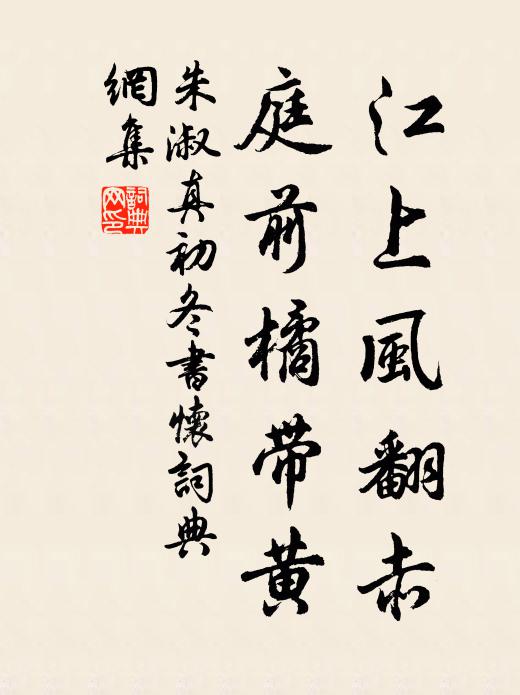 江上風翻赤
庭前橘带黄
朱淑真初冬書懷詞典
網集
詞典
网印